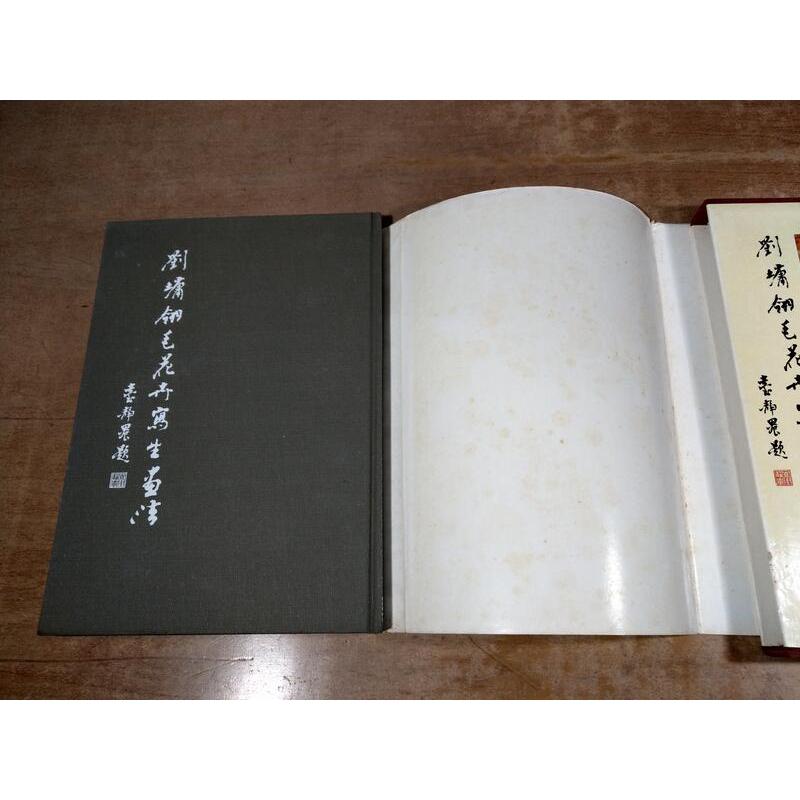 劉墉翎毛花卉寫生畫法
臺靜農題
劉墉翎毛花卉
臺靜農題